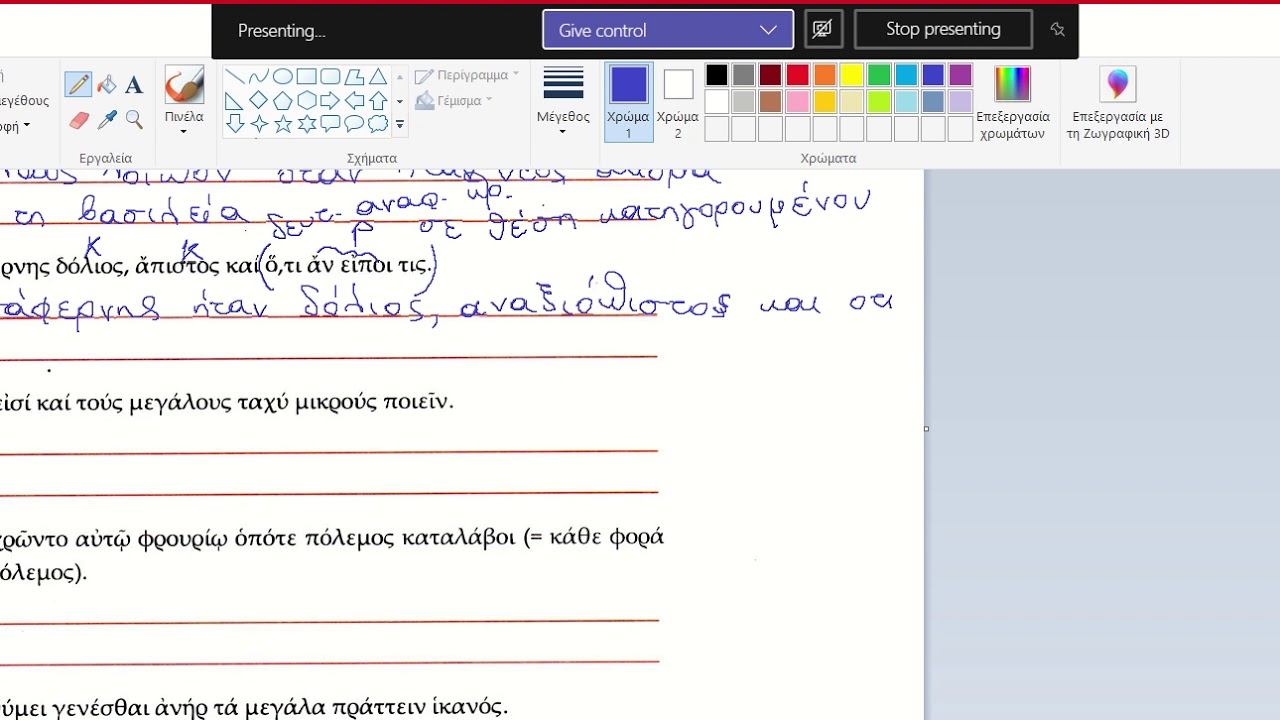 Presenting...
Give control
Stop presenting
Περίγραμμα
Γέμισμα
εγέθους
Πινέλα
Μέγεθος
Χρώμα 1
Χρώμα 2
Επεξεργασία χρωμάτων
Επεξεργασία με τη Ζωγραφική 3D
Εργαλεία
Σχήματα
Χρώματα
τη βασιλεία δευτ. αναφ. πρ. σε θέση κατηγορουμένου
Κ Κ Ρ
ρνης δόλιος, ἄπιστος καί (ὅ,τι ἄν εἴποι τις.)
άφερνης ήταν δόλιος, αναξιόπιστος και οτι
εἰσί καί τούς μεγάλους ταχύ μικρούς ποιεῖν.
χρῶντο αὐτῷ φρουρίῳ ὁπότε πόλεμος καταλάβοι (= κάθε φορά
όλεμος).
ύμει γενέσθαι ἀνήρ τά μεγάλα πράττειν ἱκανός.